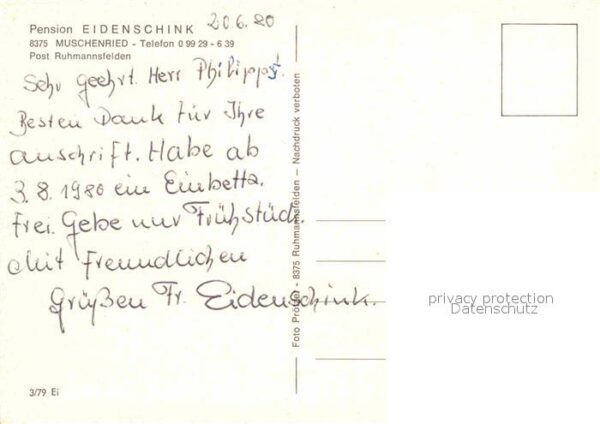 Pension EIDENSCHINK
20.6.80
8375 MUSCHENRIED - Telefon 0 99 29 - 6 39
Post Ruhmannsfelden
Sehr geehrt. Herr Philipps.
Besten Dank für Ihre
anschrift. Habe ab
3.8.1980 ein Einbettz.
frei. Gebe nur Frühstück.
Mit freundlichen
Grüßen Fr. Eidenschink.
3/79 Ei
8375 Ruhmannsfelden – Nachdruck verboten
privacy protection
Datenschutz